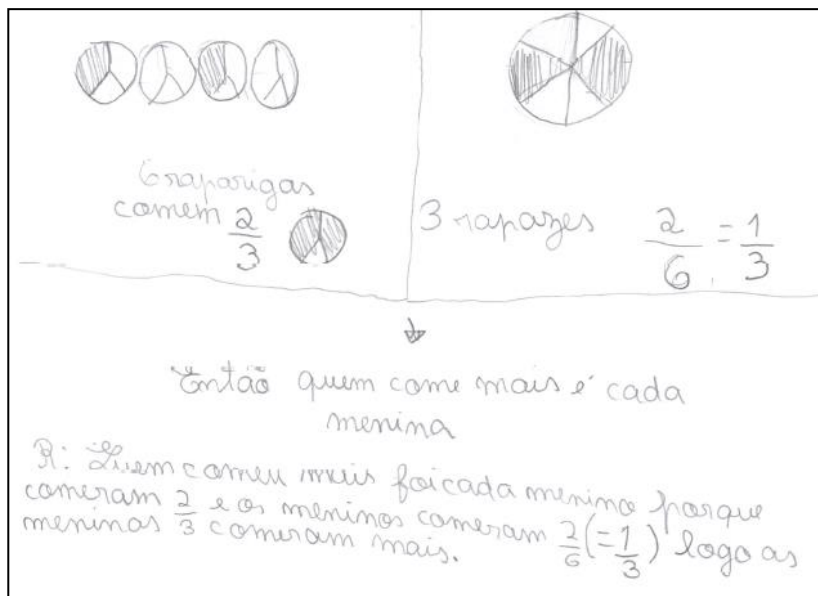 6 raparigas
comem 2/3
3 rapazes 2/6 = 1/3
Então quem come mais é cada
menina
R: Quem comeu mais foi cada menina porque
comeram 2/3 e os meninos comeram 2/6 (=1/3) logo as
meninas comeram mais.